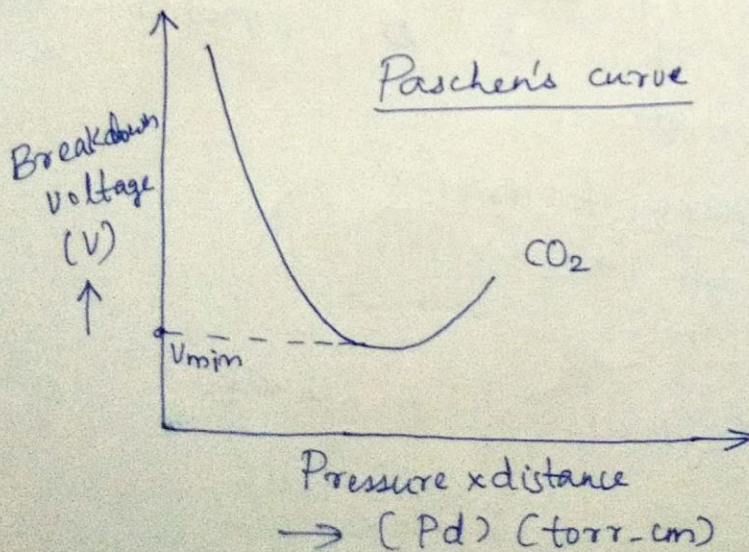 Paschen's curve
Breakdown
voltage
(V)
CO₂
Vmin
Pressure x distance
→ (Pd) (torr-cm)